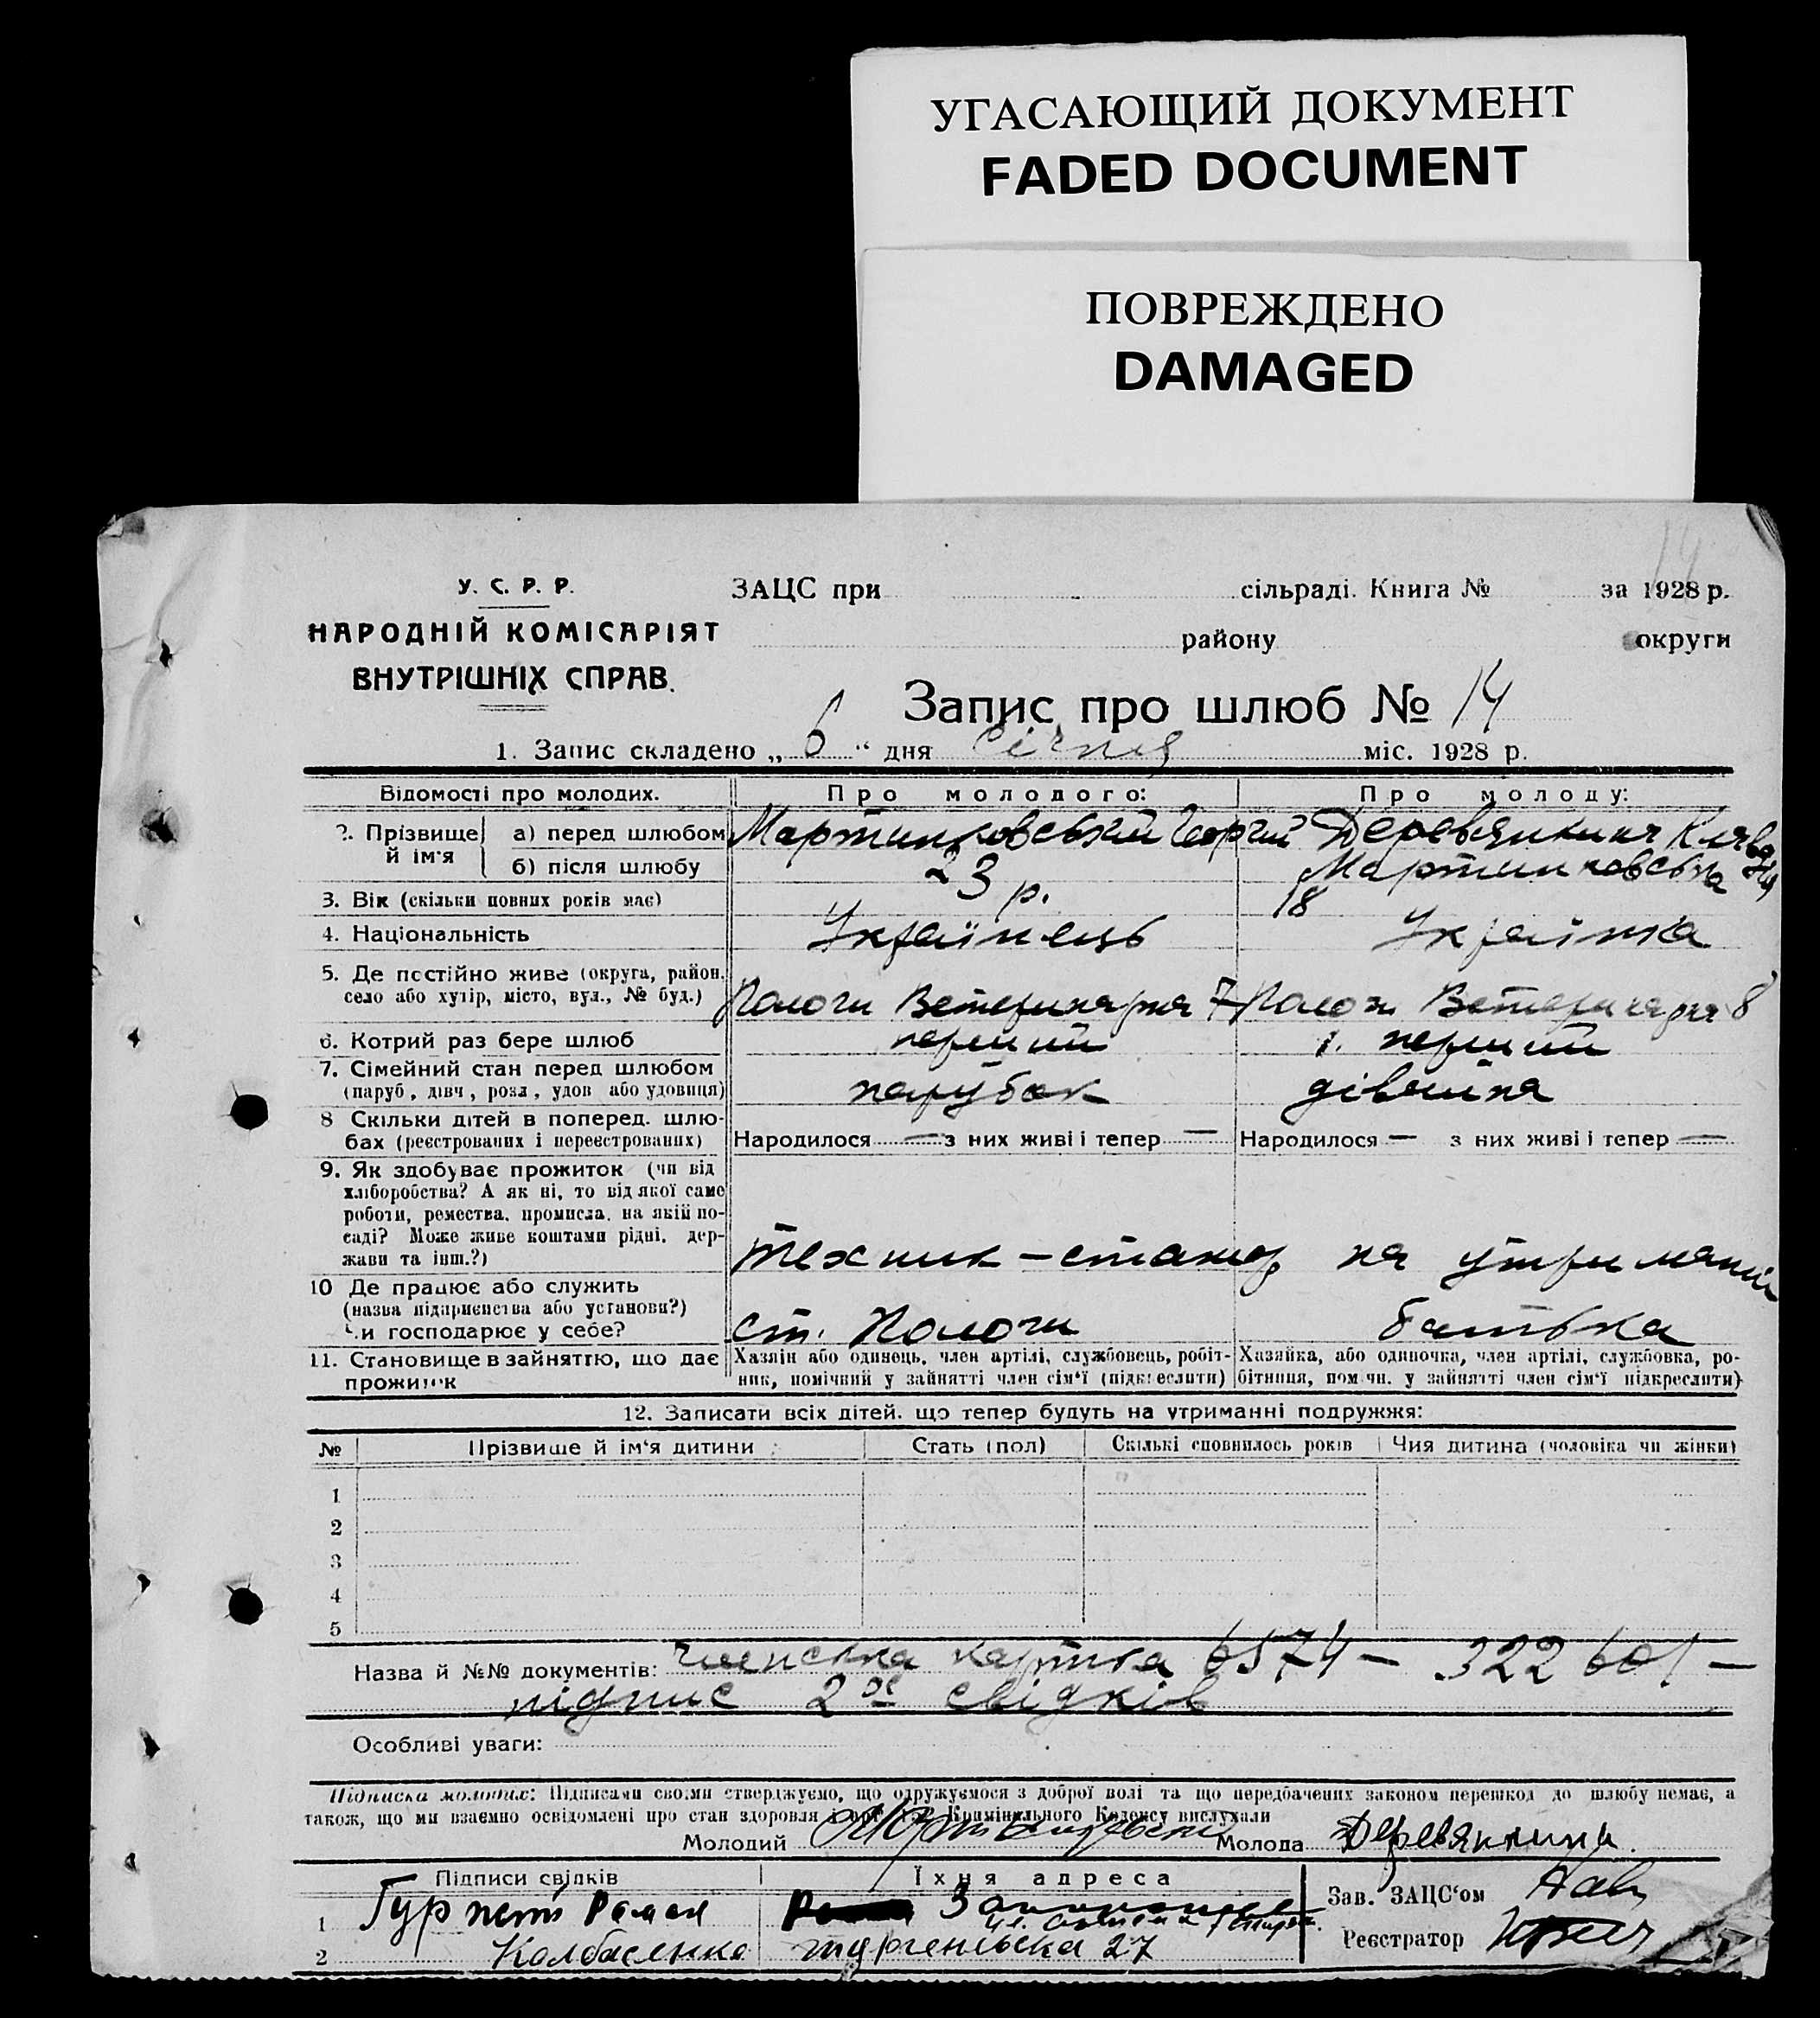 УГАСАЮЩИЙ ДОКУМЕНТ
FADED DOCUMENT
ПОВРЕЖДЕНО
DAMAGED
14
У. С. Р. Р.
НАРОДНІЙ КОМІСАРІЯТ
ВНУТРІШНІХ СПРАВ.
ЗАЦС при сільраді. Книга № за 1928 р.
району округи
Запис про шлюб № 14
1. Запис складено „ 6 “ дня січня міс. 1928 р.
Відомості про молодих. Про молодого: Про молоду:
2. Прізвище й ім'я а) перед шлюбом Мартинковський Георгій Деревянкина Клавдія
б) після шлюбу Мартинковська
3. Вік (скільки повних років має) 23 р. 18
4. Національність Українець Українка
5. Де постійно живе (округа, район, село або хутір, місто, вул., № буд.) Пологи Ветеринарна 7 Пологи Ветеринарна 8
6. Котрий раз бере шлюб перший 1. перший
7. Сімейний стан перед шлюбом (паруб., дівч., розл., удов. або удовиця) парубок дівчина
8 Скільки дітей в поперед. шлюбах (реєстрованих і нереєстрованих) Народилося — з них живі і тепер — Народилося — з них живі і тепер —
9. Як здобуває прожиток (чи від
хліборобства? А як ні, то від якої саме
роботи, ремества, промисла, на якій по-
саді? Може живе коштами рідні, дер-
жави та інш.?) технік – на утриманні
10 Де працює або служить
(назва підприємства або установи?)
Чи господарює у себе? ст. Пологи батька
11. Становище в зайняттю, що дає прожиток
Хазяін або одинець, член артілі, службовець, робіт-
ник, помічний у зайнятті член сім'ї (підкреслити)
Хазяйка, або одиночка, член артілі, службовка, ро-
бітниця, пом.чн. у зайнятті член сім'ї підкреслити)
12. Записати всіх дітей, що тепер будуть на утриманні подружжя:
№ Прізвище й ім'я дитини Стать (пол) Скількі сповнилось років Чия дитина (чоловіка чи жінки)
1
2
3
4
5
Назва й №№ документів: членська картка 6574 – 322601 –
підпис 2ох свідків
Особливі уваги:
Підписка молодих: Підписами своіми стверджуємо, що одружуємося з доброї волі та що передбачених законом перешкод до шлюбу немає, а
також, що ми взаємно освідомлені про стан здоровля Кримінального Кодексу вислухали
Молодий Молода Деревянкина
Підписи свідків Їхня адреса Зав. ЗАЦС'ом
1 Роман
2 Колбасенко тургенівська 27 Реєстратор